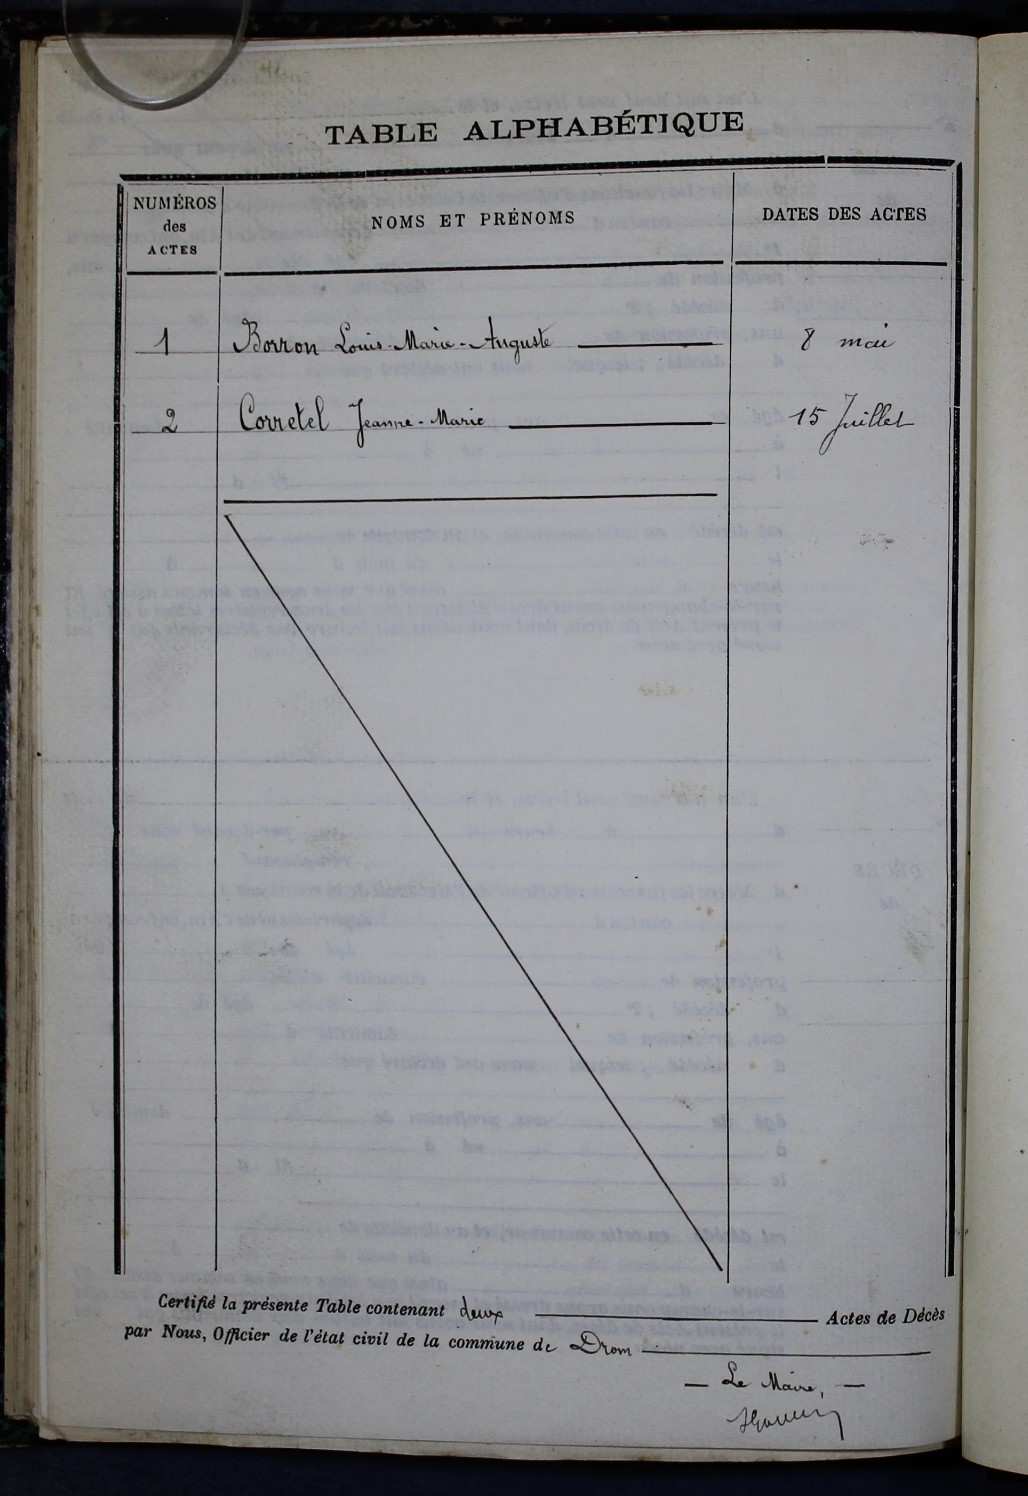 TABLE ALPHABÉTIQUE
NUMÉROS
des
ACTES
NOMS ET PRÉNOMS
DATES DES ACTES
1 Borron Louis-Marie-Auguste 8 mai
2 Corretel Jeanne-Marie 15 Juillet
Certifié la présente Table contenant deux Actes de Décès
par Nous, Officier de l'état civil de la commune de Drom
Le Maire,